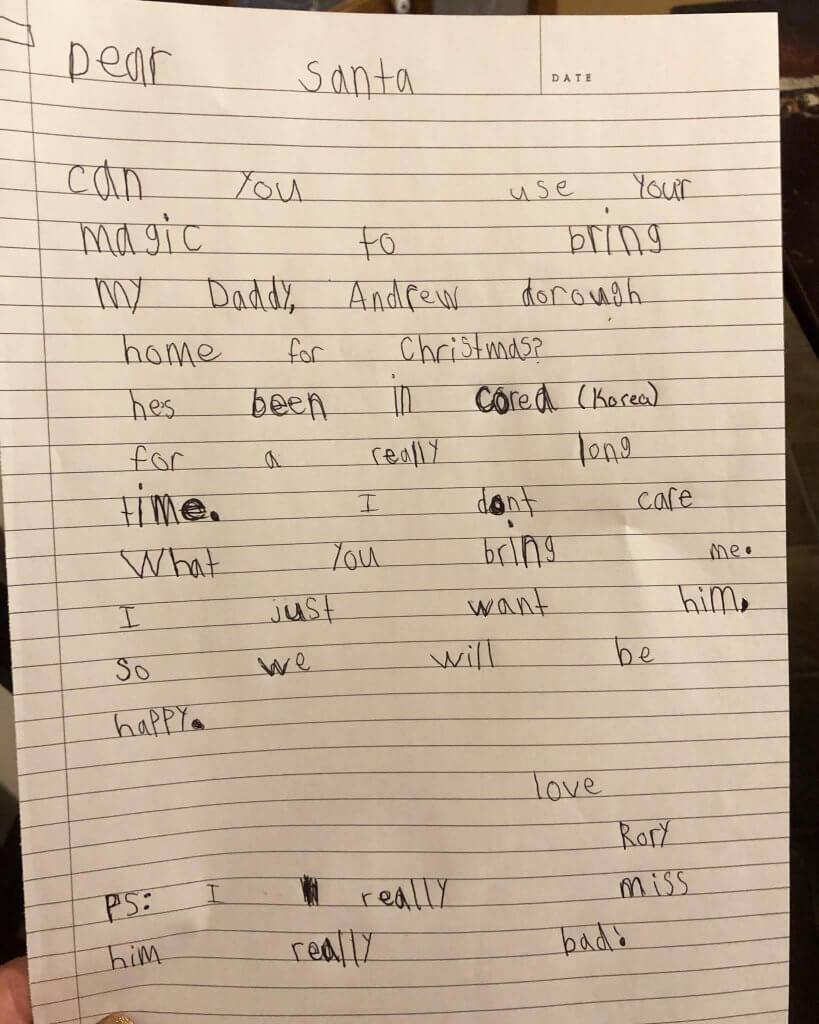 Dear Santa
DATE
can you use your
magic to bring
my Daddy, Andrew dorough
home for Christmas?
he's been in corea (Korea)
for a really long
time. I dont care
What you bring me.
I just want him.
So we will be
happy.
love
Rory
PS: I really miss
him really bad!